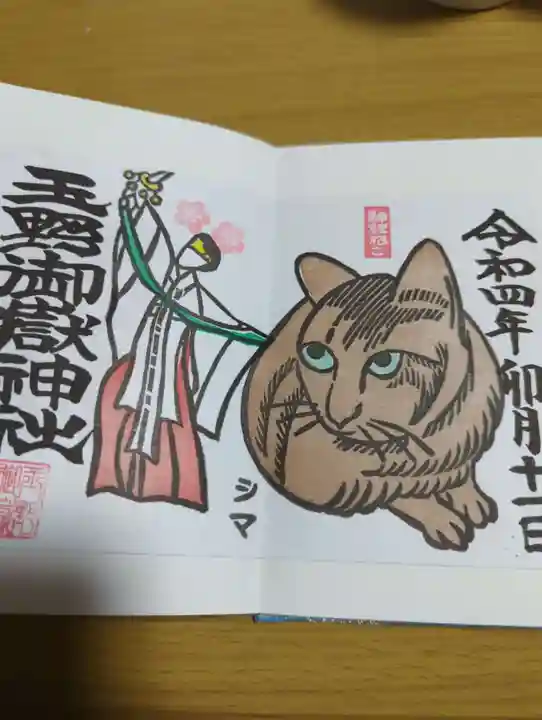 令和四年 卯月十一日
神社ねこ
シマ
玉野御嶽神社